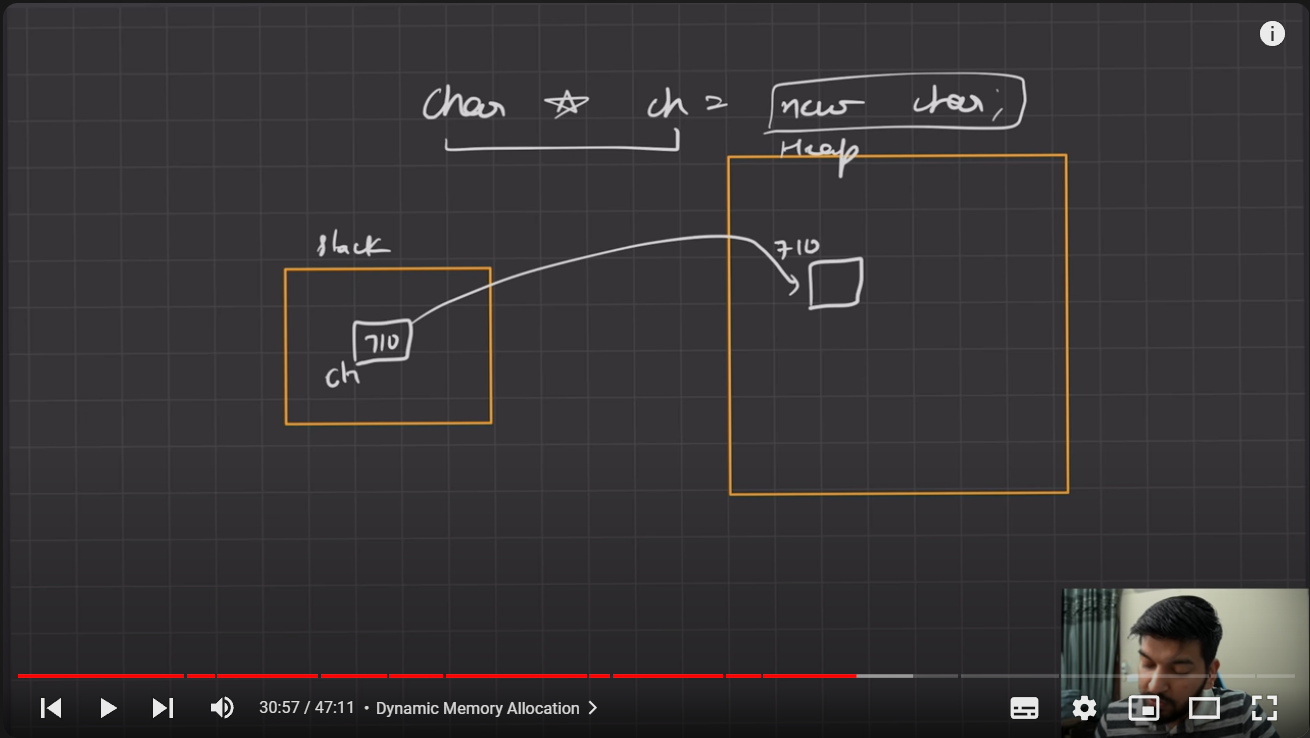 char * ch = new char;
Heap
stack
710
710
ch
30:57 / 47:11 • Dynamic Memory Allocation